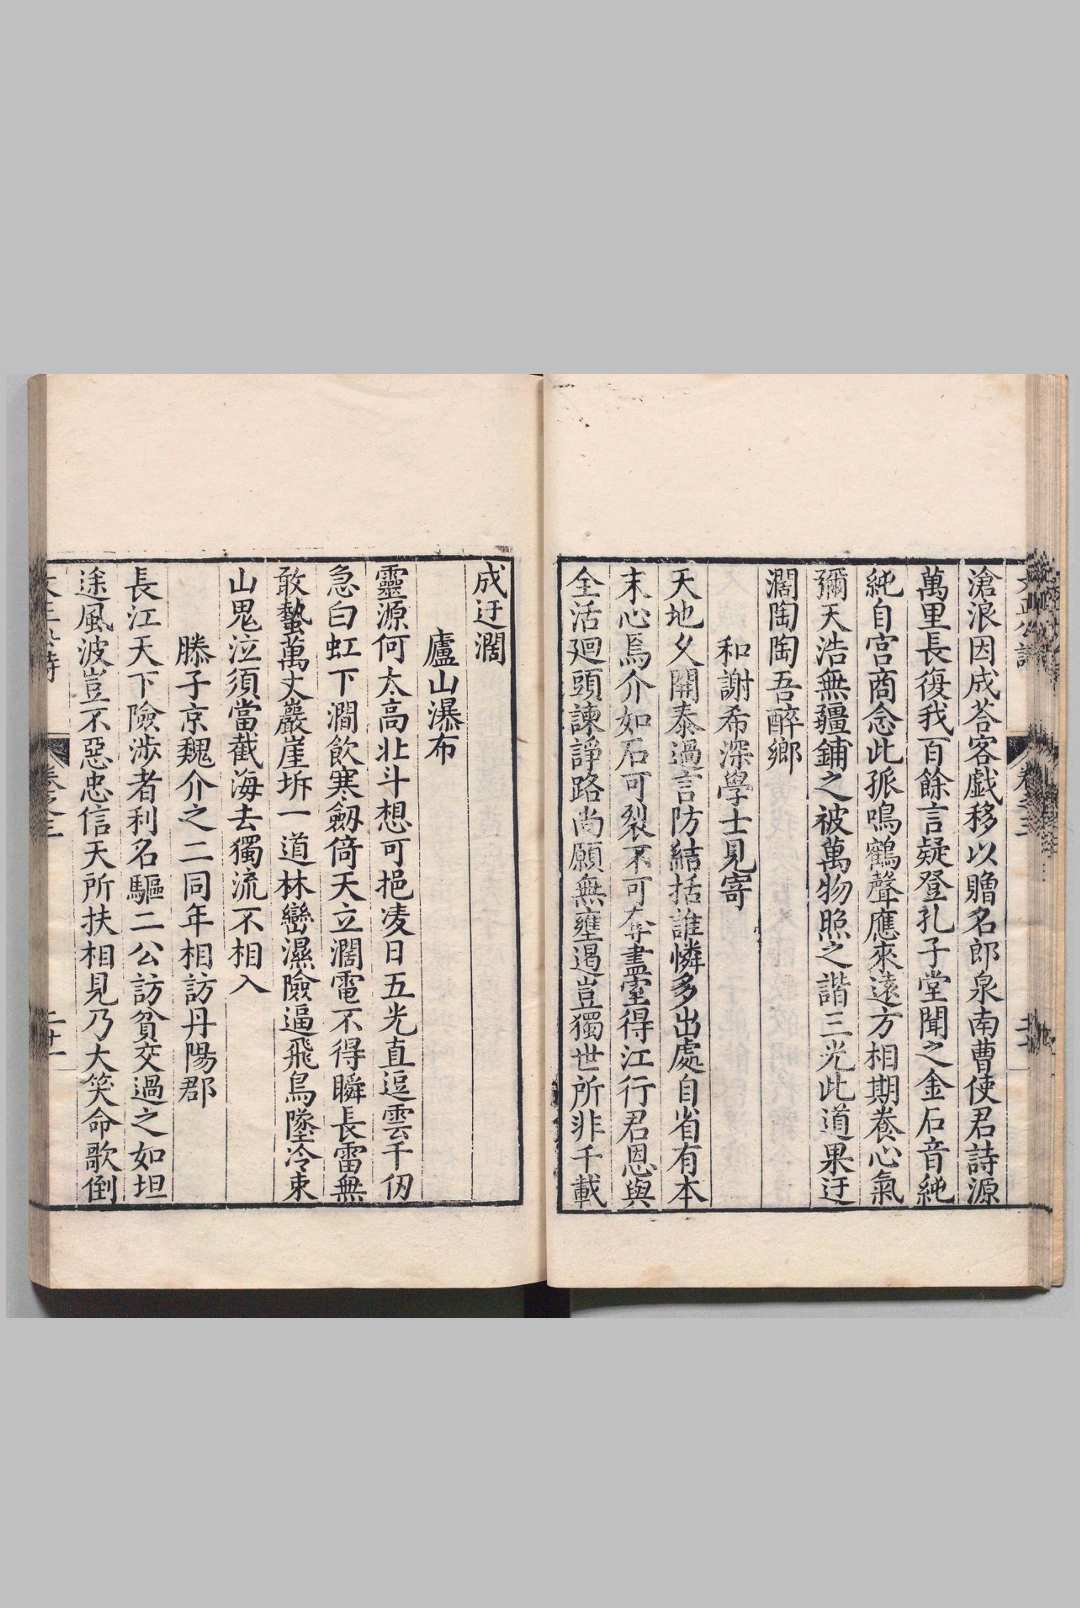 滄浪因成荅客戱移以贈名郎泉南曹使君詩源
萬里長復我百餘言疑登孔子堂聞之金石音純
純自宫商念此孤鳴鶴聲應來遠方相期養心氣
彌天浩無疆鋪之被萬物照之諧三光此道果迂
濶陶陶吾醉鄉
和謝希深學士見寄
天地久開泰過言防結括誰憐多出處自省有本
末心焉介如石可裂不可奪盡室得江行君恩與
全活廻頭諫諍路尚願無壅遏豈獨世所非千載
成迂濶
廬山瀑布
靈源何太高北斗想可挹凌日五光直逗雲千仞
急白虹下澗飲寒劔倚天立濶電不得瞬長雷無
敢蟄萬丈巖崖坼一道林巒濕險逼飛鳥墜冷束
山鬼泣須當截海去獨流不相入
滕子京魏介之二同年相訪丹陽郡
長江天下險涉者利名驅二公訪貧交過之如坦
途風波豈不惡忠信天所扶相見乃大笑命歌倒
卷之三
二十一